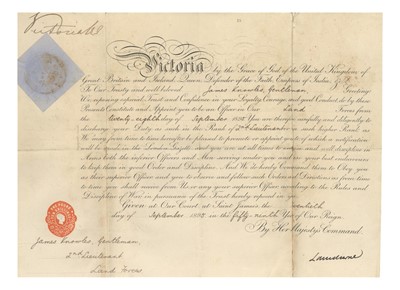 Victoria R
Victoria by the Grace of God, of the United Kingdom of
Great Britain and Ireland, Queen, Defender of the Faith, Empress of India, &c.
To Our Trusty and well beloved James Knowles, Gentleman Greeting
We reposing especial Trust and Confidence in your Loyalty, Courage, and good Conduct do by these
Presents Constitute and Appoint you to be an Officer in Our Land Forces from
the twenty eighth day of September 1895 You are therefore carefully and diligently to
discharge your Duty as such in the Rank of 2nd Lieutenant or in such higher Rank as
We may from time to time hereafter be pleased to promote or appoint you to of which a notification
will be made in the London Gazette and you are at all times to exercise and well discipline in
Arms both the inferior Officers and Men serving under you and use your best endeavours
to keep them in good Order and Discipline. And We do hereby Command them to Obey you
as their superior Officer and you to observe and follow such Orders and Directions as from time
to time you shall receive from Us or any your superior Officer according to the Rules and
Discipline of War in pursuance of the Trust hereby reposed in you
Given at Our Court at Saint James's the
day of September 1895 in the fifty-ninth Year of Our Reign
By Her Majesty's Command
James Knowles, Gentleman
2nd Lieutenant
Land Forces
Lansdowne